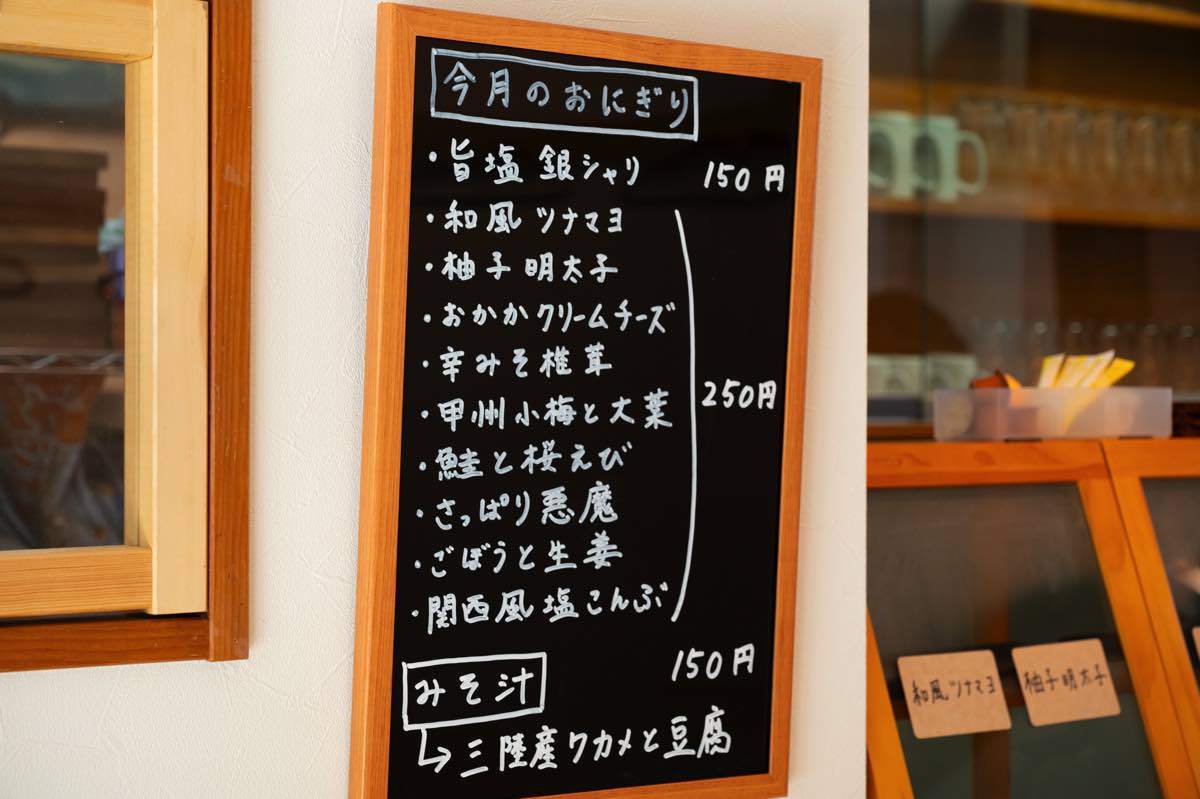 今月のおにぎり
・旨塩 銀シャリ 150円
・和風ツナマヨ
・柚子明太子
・おかかクリームチーズ
・辛みそ椎茸
・甲州小梅と大葉 250円
・鮭と桜えび
・さっぱり悪魔
・ごぼうと生姜
・関西風塩こんぶ
みそ汁 150円
↳三陸産ワカメと豆腐
和風ツナマヨ
柚子明太子